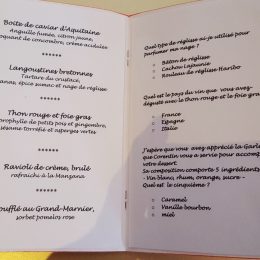 Boite de caviar d'Aquitaine
Anguille fumée, citron jaune,
quant de concombre, crème acidulée
******
Langoustines bretonnes
Tartare du crustacé,
anas, épice sumac et nage de réglisse
******
Thon rouge et foie gras
rophylle de petits pois et gingembre,
sésame torréfié et asperges vertes
******
Ravioli de crème, brulé
rafraichi à la Manzana
******
oufflé au Grand-Marnier,
sorbet pomelos rose
Quel type de réglisse ai je utilisé pour
parfumer ma nage ?
Bâton de réglisse
Cachou Lajaunie
Rouleau de réglisse Haribo
Quel est le pays du vin que vous avez
dégusté avec le thon rouge et le foie gra
France
Espagne
Italie
J'espère que vous avez apprécié la Garl
que Corentin vous a servie pour accomp
votre dessert
Sa composition comporte 5 ingrédients
- Vin blanc, rhum, orange, sucre -
Quel est le cinquième ?
Caramel
Vanille bourbon
miel